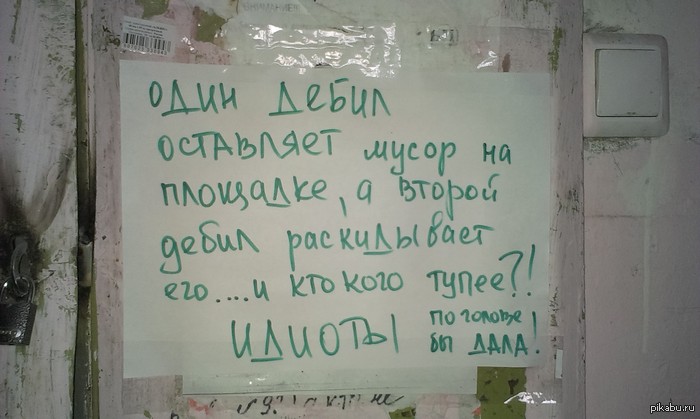 ВНИМАНИЕ
ОДИН ДЕБИЛ
ОСТАВЛЯЕТ мусор на
площадке, а второй
дебил раскидывает
его....и кто кого тупее?!
ИДИОТЫ
по голове
бы ДАЛА!
pikabu.ru